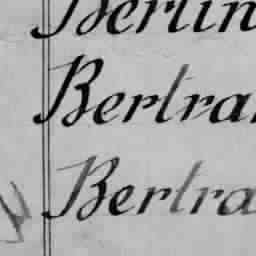 Berlin
Bertra
Bertra